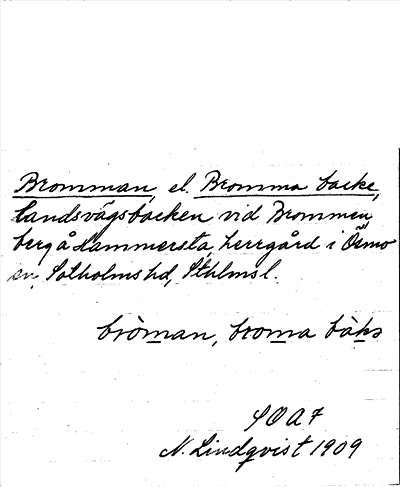 Bromman, el. Bromma backe,
landsvägsbacken vid Brommen,
berg å dammersta, herrgård i Ösmo
sn, Sotholms hd, Sthlms l.
bròman, broma bàkə
SOA 7
N. Lindqvist 1909